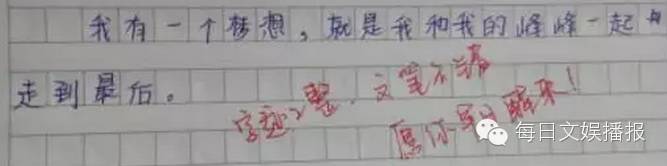 我有一个梦想，就是我和我的峰峰一起
走到最后。
字迹工整，文笔不错
愿你早日醒来！
每日文娱播报